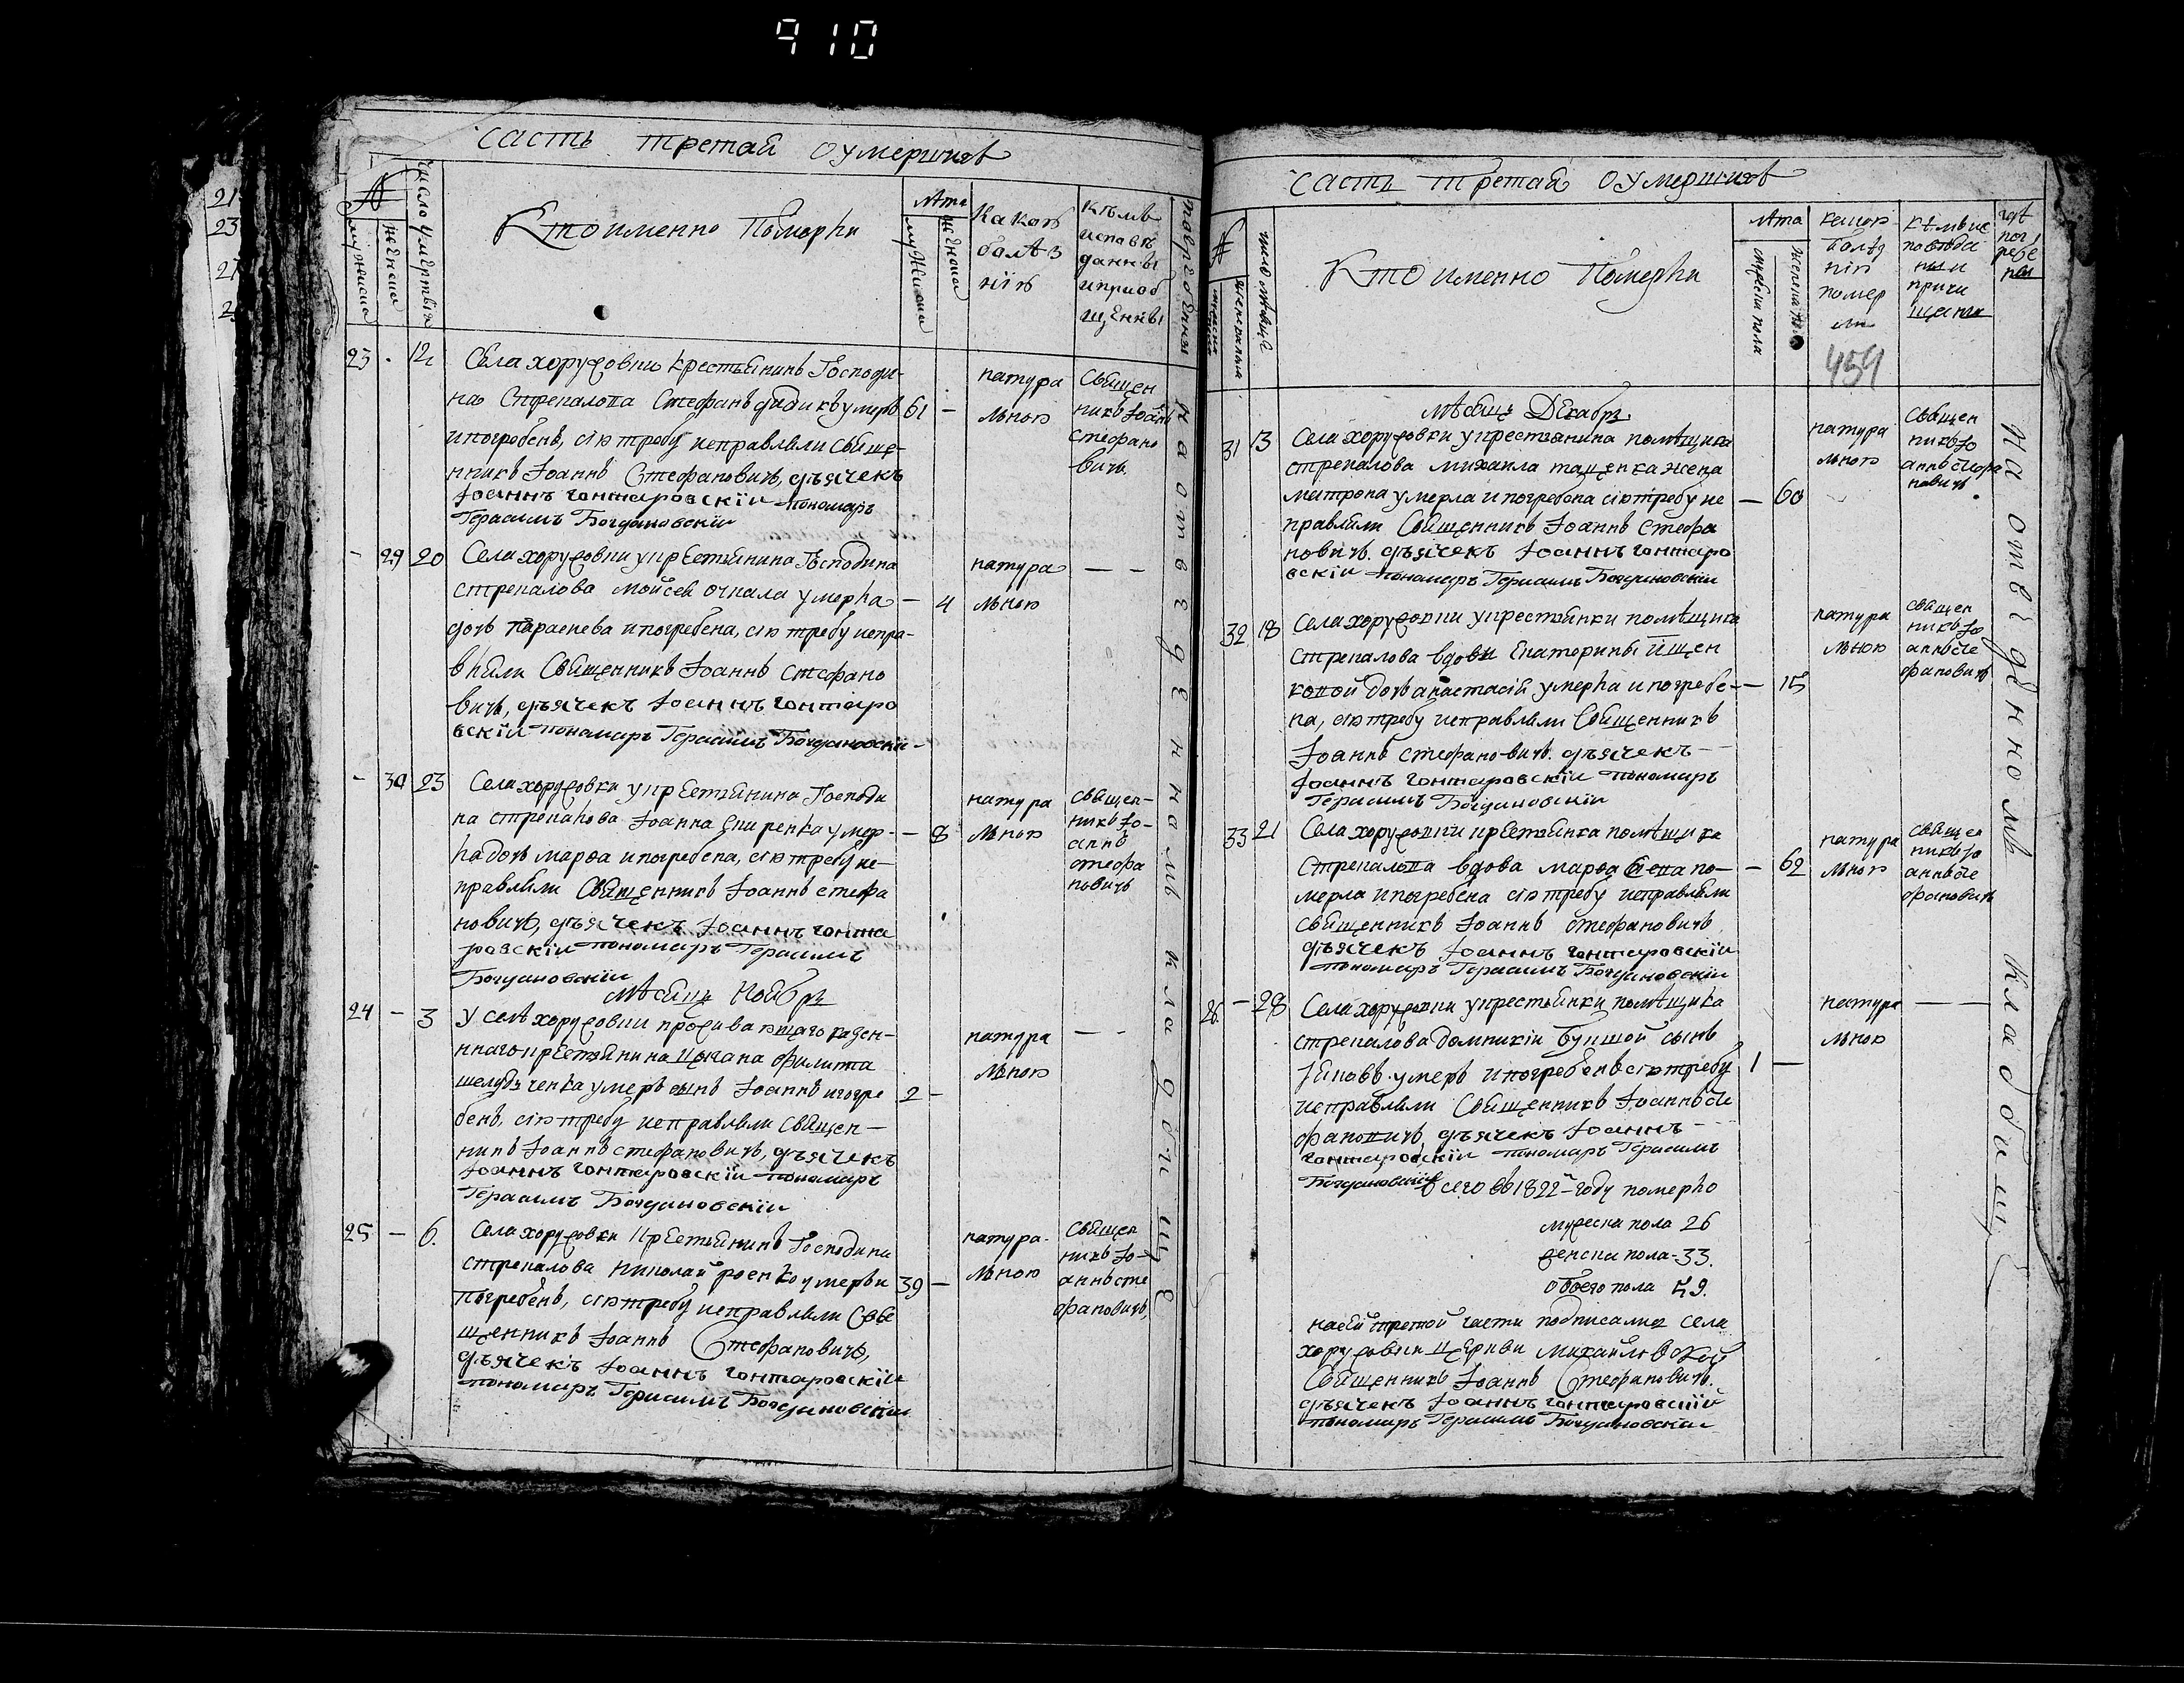 910
часть третая о умерших
№
мужска
женска
число умертвия
Кто именно Померли
лѣта
мужска
женска
Какою
болѣз
нію
кѣмъ
исповѣ
данны
и приоб
щенны
погребены
23 · 12
Села хоружовки крестьянинъ Господи-
на Стрепалова Стефанъ дядикъ умеръ 61 —
и погребенъ, сію требу исправляли Свяще-
нникъ Іоаннъ Стефановичъ, дъячекъ
Іоаннъ Гонтаровскіи пономаръ
Герасимъ Богдановскіи
натура
льною
Свящeн
никъ Іоаннъ
стефано
вичъ.
— 29 20
Села хоружовки у крестьянина Господина
стрепалова Мойсея очкала умерла — 4
дочь Параскева и погребена, сію требу испра-
вляли Священникъ Іоаннъ Стефано
вичъ, дъячекъ Іоаннъ Гонтаро
вскіи пономаръ Герасимъ Богдановскіи
натура
льною
— —
— 30 23
Села хоружовки у крестьянина Господи
на стрепалова Іоанна умер- — 8
ла дочь марѳа и погребена, сію требу ис-
правляли Священникъ Іоаннъ стефа
новичъ, дъячекъ Іоаннъ Гонта
ровскіи пономаръ Герасимъ
Богдановскіи
натура
льною
Священ-
никъ Іо-
аннъ
стефа
новичъ
Мѣсяцъ Ноябрь
24 — 3
У селѣ хоружовки проживающаго казен-
ннаго крестьянина филипа
умеръ сынъ Іоаннъ и погре 2 —
бенъ, сію требу исправляли Священ-
никъ Іоаннъ стефановичъ, дъячекъ
Іоаннъ Гонтаровскіи пономаръ
Герасимъ Богдановскіи
натура
льною
— —
25 — 6.
Села хоружовки Крестьянинъ Господина
стрепалова Николай роенко умеръ и 39 —
погребенъ, сію требу исправляли Свя
щенникъ Іоаннъ Стефановичъ,
дъячекъ Іоаннъ Гонтаровскіи
пономаръ Герасимъ Богдановскіи
натура-
льною
Священ
никъ Іо-
аннъ сте
фановичъ,
на отведенномъ кладбище
часть третая о умерших
№
число
Кто именно Померли
лѣта
мужеска пола
женска пола
какою
болѣз
нію
помер
ли
кѣмъ ис
повѣда
ны и
прича
щены
гдѣ
пог,
ребе
ны
459
Мѣсяцъ Декабрь
31 13
Села хоружовки у крестьянина помѣщика
стрепалова михаила тащенка жена
матрона умерла и погребена сію требу ис — 60
правляли Священникъ Іоаннъ Стефа
новичъ. дъячекъ Іоаннъ Гонтаро
вскіи пономаръ Герасимъ Богдановскіи
натура
льною
Священ
никъ Іо
аннъ Стефа
новичъ
32 18
Села хоружовки у крестьянки помѣщика
стрепалова вдовы Екатерины Ищен
ковой дочь анастасія умерла и погребе- — 15
на, сію требу исправляли Священникъ
Іоаннъ стефановичъ. дъячекъ
Іоаннъ Гонтаровскіи пономаръ
Герасимъ Богдановскіи
натура
льною
священ
никъ Іо
аннъ Сте
фановичъ
33 21
Села хоружовки крестьянка помѣщика
Стрепалова вдова марѳа по- — 62
мерла и погребена сію требу исправляли
Священникъ Іоаннъ Стефановичъ
дъячекъ Іоаннъ Гонтаровскіи
пономаръ Герасимъ Богдановскіи
натура
льною
Священ
никъ Іо
аннъ Сте
фановичъ
26. — 28
Села хоружовки у крестьянки помѣщика
стрепалова домникіи сынъ
умеръ и погребенъ сію требу 1 —
исправляли Священникъ Іоаннъ Сте
фановичъ, дъячекъ Іоаннъ
Гонтаровскіи пономаръ Герасимъ
Богдановскіи
натура
льною
— —
Всего въ 1822 году померло
мужеска пола 26
женска пола - 33.
обоего пола 59.
на сей третой части подписалися села
хоружовки церкви Михайловской
Священникъ Іоаннъ Стефановичъ.
дъячекъ Іоаннъ Гонтаровскій
пономаръ Герасимъ Богдановскіи
на отведенномъ кладбищѣ